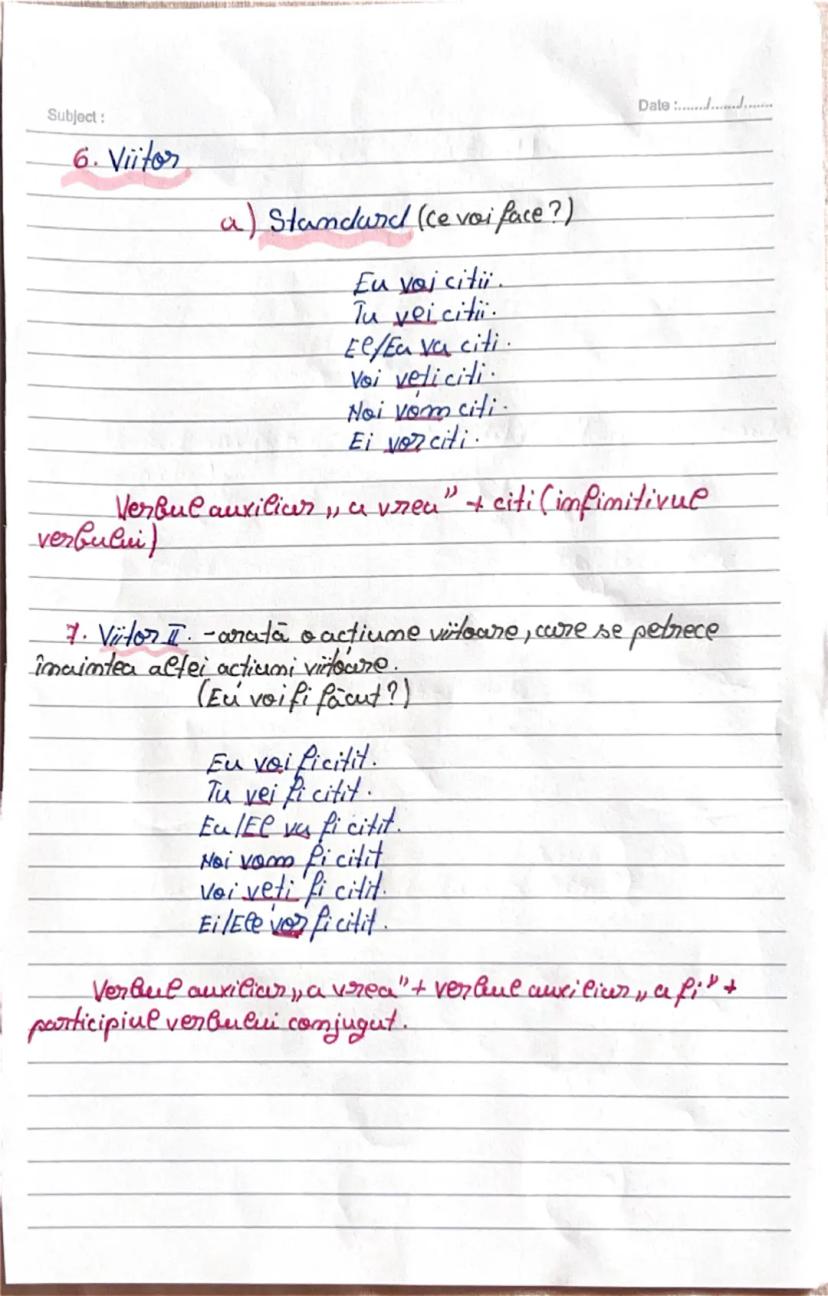 Subject :
Date :......./......./.......
6. Viitor
a) Standard (ce voi face?)
Eu voi citii.
Tu vei citii.
El/Ea va citi.
Voi veți citi.
Noi vom citi.
Ei vor citi.
Verbul auxiliar „a vrea” + citi (infinitivul
verbului)
7. Viitor II. - arată o acțiune viitoare, care se petrece
înaintea altei acțiuni viitoare.
(Eu voi fi făcut?)
Eu voi fi citit.
Tu vei fi citit.
Ea/El va fi citit.
Noi vom fi citit
Voi veți fi citit.
Ei/Ele vor fi citit.
Verbul auxiliar „a vrea” + verbul auxiliar „a fi” +
participiul verbului conjugat.